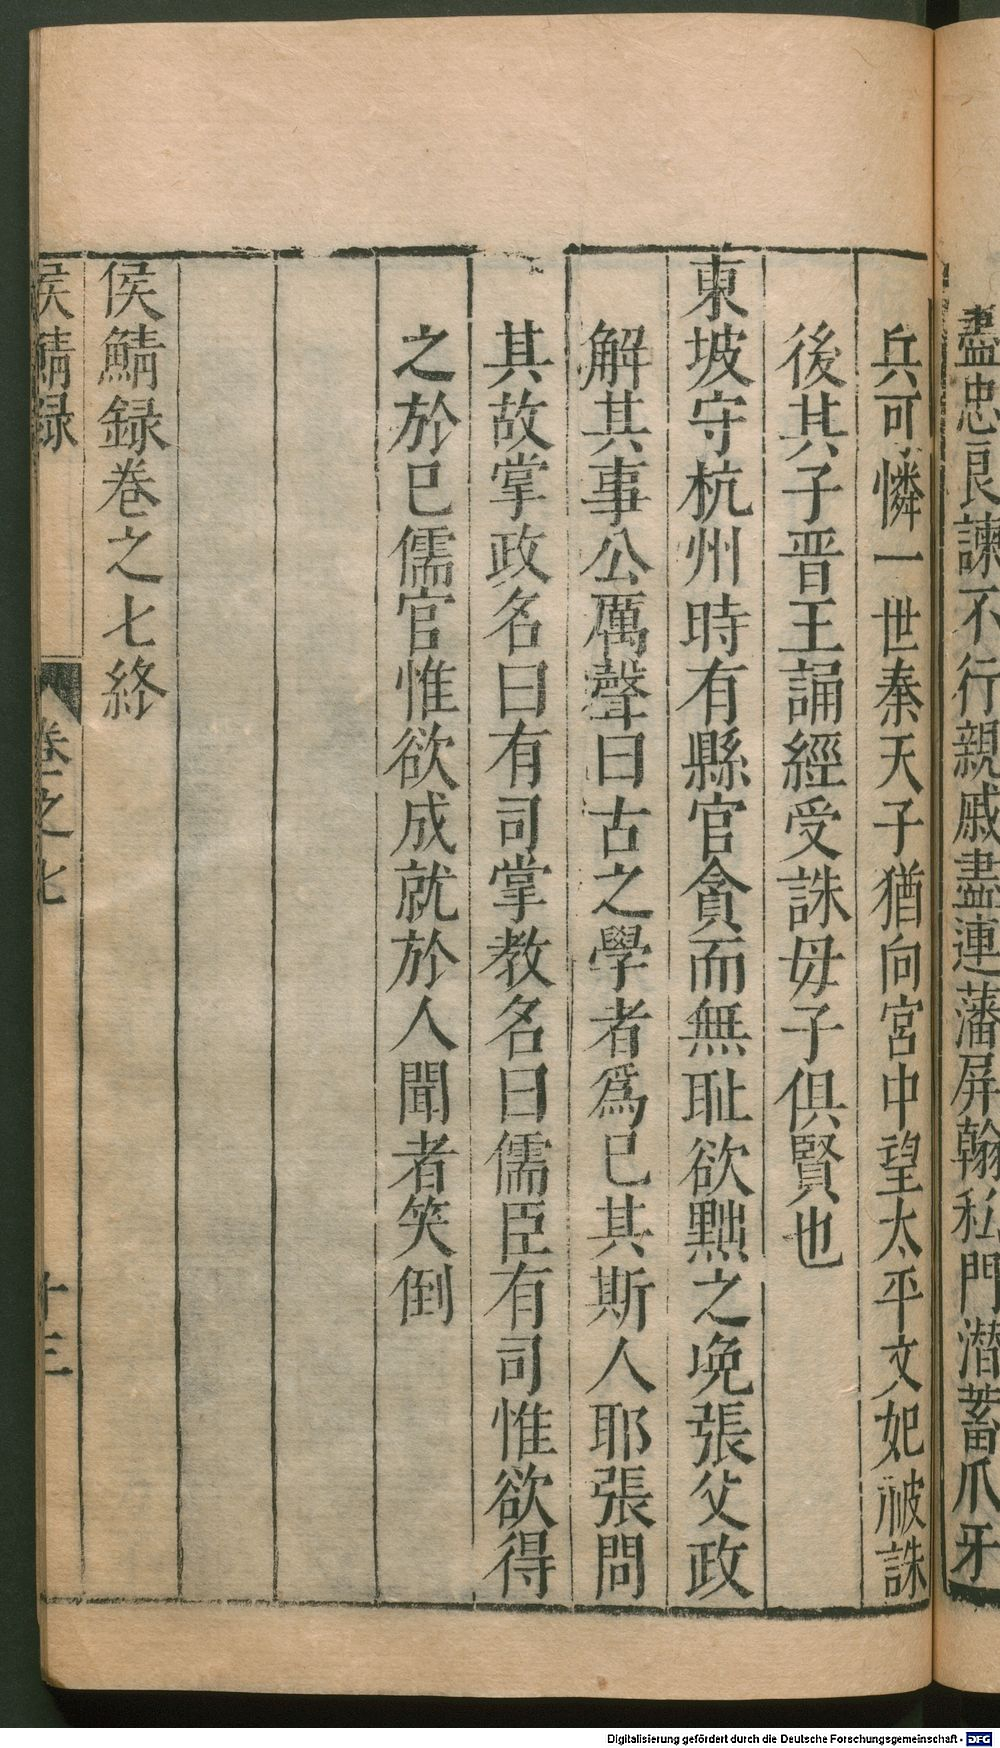 盡忠良諫不行親戚盡連藩屏翰私門潜蓄爪牙
兵可憐一世秦天子猶向宮中望太平文妃被誅
後其子晋王誦經受誅母子俱賢也
東坡守杭州時有縣官貪而無耻欲黜之晚張父政
解其事公厲聲曰古之學者爲已其斯人耶張問
其故掌政名曰有司掌教名曰儒臣有司惟欲得
之於已儒官惟欲成就於人聞者笑倒
侯鯖録卷之七終
侯鯖録 卷之七 十三
Digitalisierung gefördert durch die Deutsche Forschungsgemeinschaft - DFG